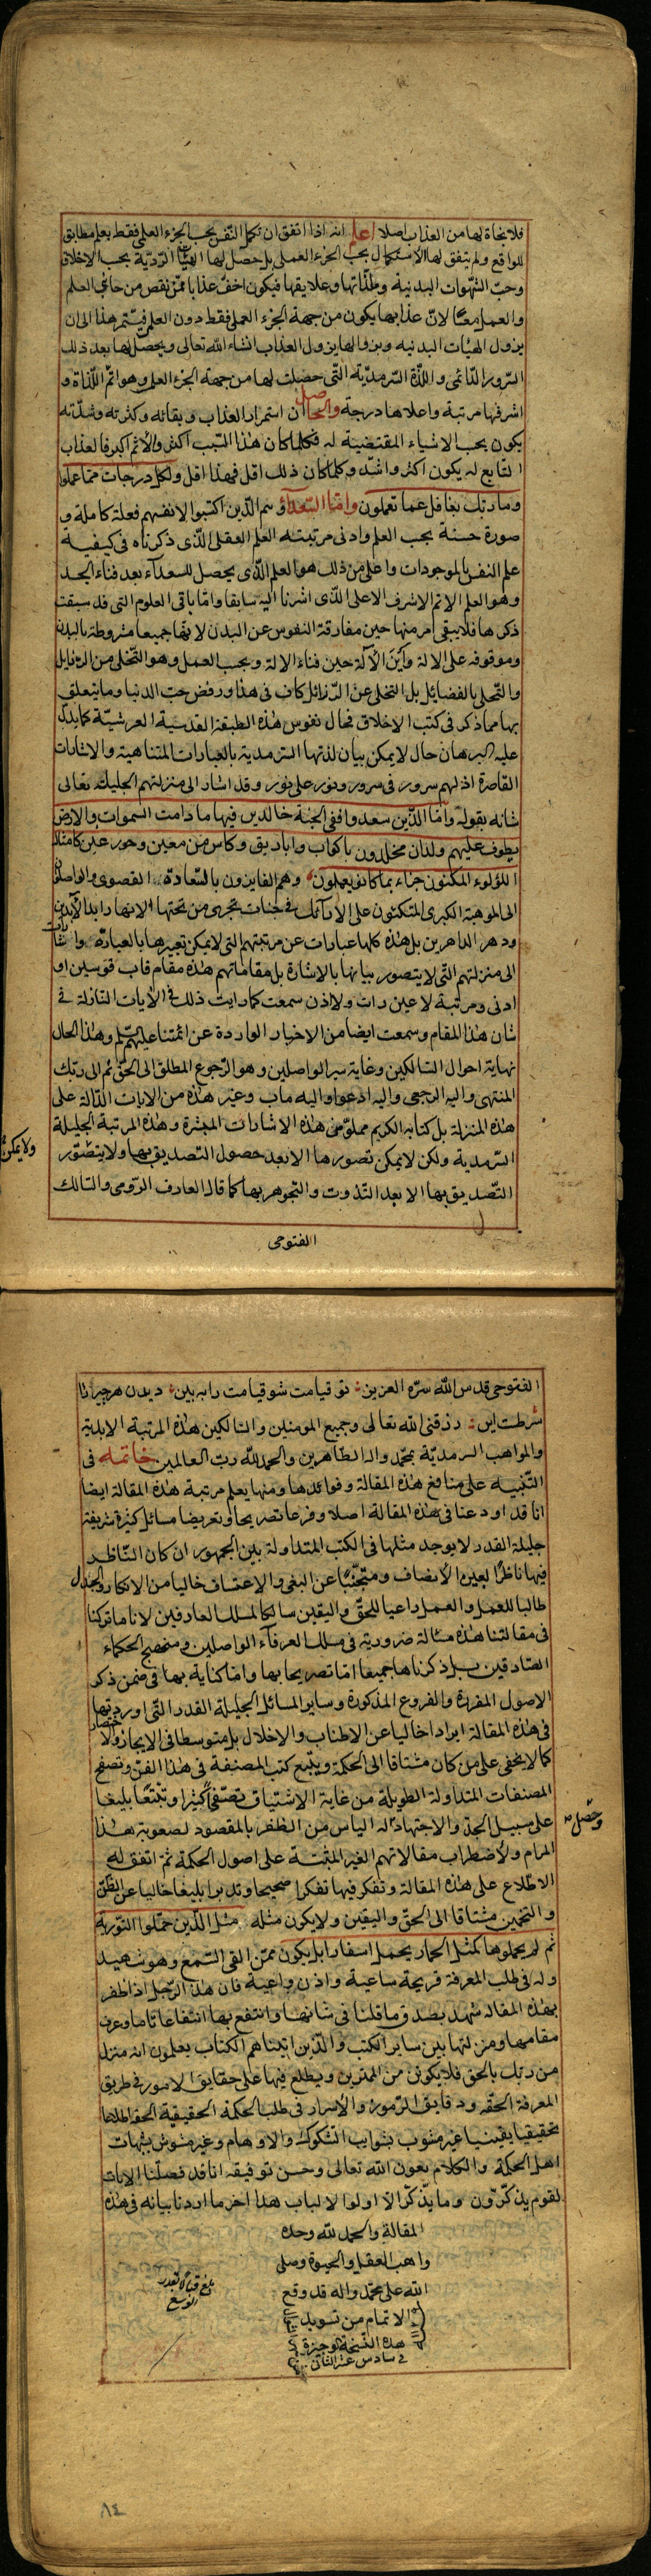 فلا نجاة لها من العذاب اصلا اعلم انه اذا اتفق ان تكمل النفس بحسب الجزء العلمى فقط بعلم مطابق
للواقع ولم يتفق لها الاستكمال بحسب الجزء العملى بل حصل لها الهيئات الرّديّة بحسب الاخلاق
وحبّ الشهوات البدنية وملذّاتها وعلايقها فيكون اخفّ عذابا ممّن نقص من جانبى العلم
والعمل معًا لانّ عذابها يكون من جهة الجزء العملى فقط دون العلمى فيستمر هذا الى ان
يزول الهيئات البدنيه وبزوالها يزول العذاب انشاء الله تعالى ويحصل لها بعد ذلك
السّرور الدّائمى واللذّة السّرمديّة التّى حصلت لها من جهة الجزء العلمى وهو اتمّ اللّذات و
اشرفها مرتبة واعلاها درجة والحاصل ان استمرار العذاب وبقائه وكثرته وشدّته
يكون بحسب الاشياء المقتضية له فكلما كان هذا السّبب اكثر والاثم اكبر فالعذاب
التابع له يكون اكثر واشدّ وكلما كان ذلك اقل فهذا اقل ولكل درجات ممّا عملوا
وما ربّك بغافل عما تعملون وامّا السّعداء وهم الذّين اكتسبوا لانفسهم فعلة كاملة و
صورة حسنة بحسب العلم وادنى مرتبته العلم العقلى الذّى ذكرناه فى كيفية
علم النفس بالموجودات واعلى من ذلك هو العلم الذّى يحصل للسعدآء بعد فناء الجسد
وهو العلم الاتم الاشرف الاعلى الذّى اشرنا اليه سابقا وامّا باقى العلوم التى قد سبقت
ذكرها فلا يبقى امر منها حين مفارقة النفوس عن البدن لانّها جميعا مشروطة بالبدن
وموقوفه على الالة واين الآلة حين فناء الالة وبحسب العمل وهو التّخلى من الرّذايل
والتّحلى بالفضايل بل التخلى عن الرّذائل كاف فى هذا ورفض حبّ الدنيا وما يتعلق
بها مما ذكر فى كتب الاخلاق فحال نفوس هذه الطبقة القدسية العرشيّة كما يدلّ
عليه البرهان حال لا يمكن بيان لذتها السّرمدية بالعبارات المتناهية والاشارات
القاصرة اذ لهم سرور فى سرور ونور على نور وقد اشار الى منزلتهم الجليلة تعالى
شانه بقوله وامّا الذّين سعدوا ففى الجنّة خالدين فيها ما دامت السّموات والارض
يطوف عليهم ولدان مخلدون باكواب واباريق وكاس من معين وحور عين كامثال
اللؤلوء المكنون جزاء بما كانوا يعملون وهم الفايزون بالسّعادة القصوى والواصلون
الى الموهبة الكبرى المتكئون على الارآئك فى جنات تجرى من تحتها الانهار ابد الآبدين
ودهر الداهرين بل هذه كلها عبارات عن مرتبتهم التى لا يمكن تعبيرها بالعبارة واشارات
الى منزلتهم التّى لا يتصور بيانها بالاشارة بل مقاماتهم هذه مقام قاب قوسين او
ادنى ومرتبة لا عين رات ولا اذن سمعت كما رايت ذلك فى الايات النّازلة فى
شان هذا المقام وسمعت ايضا من الاخبار الواردة عن ائمّتنا عليهم السّلم وهذا الحال
نهاية احوال السّالكين وغاية سير الواصلين وهو الرّجوع المطلق الى الحقّ ثم الى ربّك
المنتهى واليه الرجعى واليه ادعو واليه ماب وغير هذه من الايات الدّالة على
هذه المنزلة بل كتابه الكريم مملوّ من هذه الاشارات المبشرة وهذه المرتبة الجليلة
السّرمدية ولكن لا يمكن تصورها الا بعد حصول التّصديق بها ولا يتصّور
ولا يمكن
التّصديق بها الا بعد التّذوت والتّجوهر بها كما قال العارف الرّومى والسّالك
الفتوحى
الفتوحى قدس الله سرّه العزيز تو قيامت شو قيامت را ببين ديدن هر چيز را
شرطست اين رزقنى الله تعالى وجميع المومنين والسّالكين هذه المرتبة الابديّة
والمواهب السرمديّة بمحمّد واله الطاهرين والحمد لله ربّ العالمين خاتمه فى
التّنبيه على منافع هذه المقالة وفوائدها ومنها يعلم مرتبة هذه المقالة ايضا
انا قد اودعنا فى هذه المقالة اصلا وفرعا تصريحا وتعريضا مسائل كثيرة شريفة
جليلة القدر لا يوجد مثلها فى الكتب المتداولة بين الجمهور ان كان النّاظر
فيها ناظرًا بعين الانصاف ومتجنّبًا عن البغى والاعتساف خاليا من الانكار والجدل
طالبا للعمل والعمل داعيا للحقّ واليقين سالكا لمسلك العارفين لانا ما تركنا
فى مقالتنا هذه مسئالة ضرورية فى مسلك العرفآء الواصلين ومنهج الحكماء
الصّادقين بل ذكرناها جميعا امّا تصريحا بها وامّا كناية بها فى ضمن ذكر
الاصول المقررة والفروع المذكورة وساير المسائل الجليلة القدر التّى اوردتها
فى هذه المقالة ايرادا خاليا عن الاطناب والاخلال بل متوسطا فى الايجاز والاختصار
كما لا يخفى على من كان مشتاقا الى الحكمة ويتبع كتب المصنفة فى هذا الفن وتصفح
المصنفات المتداولة الطويلة من غاية الاشتياق تصفّحًا كثيرا وتتبّعًا بليغا
وحصل
على سبيل الجدّ والاجتهاد له الياس من الظفر بالمقصود لصعوبة هذا
المرام ولاضطراب مقالاتهم الغير المثبتة على اصول الحكمة ثمّ اتفق له
الاطّلاع على هذه المقالة وتفكّر فيها تفكرا صحيحا وتدبرا بليغا خاليا عن الظّنّ
والتخمين مشتاقا الى الحقّ واليقين ولا يكون مثله مثل الذّين حمّلوا التّورية
ثم لم يحملوها كمثل الحمار يحمل اسفارا بل يكون ممّن القى السّمع وهو شهيد
وله فى طلب المعرفة قريحة ساعية واذن واعية فان هذا الرّجل اذا ظفر
بهذه المقاله شهد بصدق ما قلنا فى شانها وانتفع بها انتفاعا تاما وعرف
مقامها ومنزلتها بين ساير الكتب والّذين اتيناهم الكتاب يعلمون انه منزل
من ربّك بالحق فلا يكونن من الممترين ويطلع فيها على حقايق الامور فى طريق
المعرفة الحقّه ودقايق الرّموز والاسرار فى طلب الحكمة الحقيقية الحقّه اطلاعا
تحقيقيا يقينيا غير مشوب بشوايب الشّكوك والاوهام وغير مشوش بشبهات
اهل الحكمة والكلام بعون الله تعالى وحسن توفيقه انا قد فصّلنا الايات
لقوم يذكّرون وما يذّكّر الّا اولوا الالباب هذا اخر ما اردنا بيانه فى هذه
المقالة والحمد لله وحده
واهب العقل والحيوة وصلى
الله على محمّد واله قد وقع
الاتمام من تسويد
هذه النّسخة الوجيزة
فى سادس عشر الثانى
بلغ قبالا بقدر
الوسع
٨٤